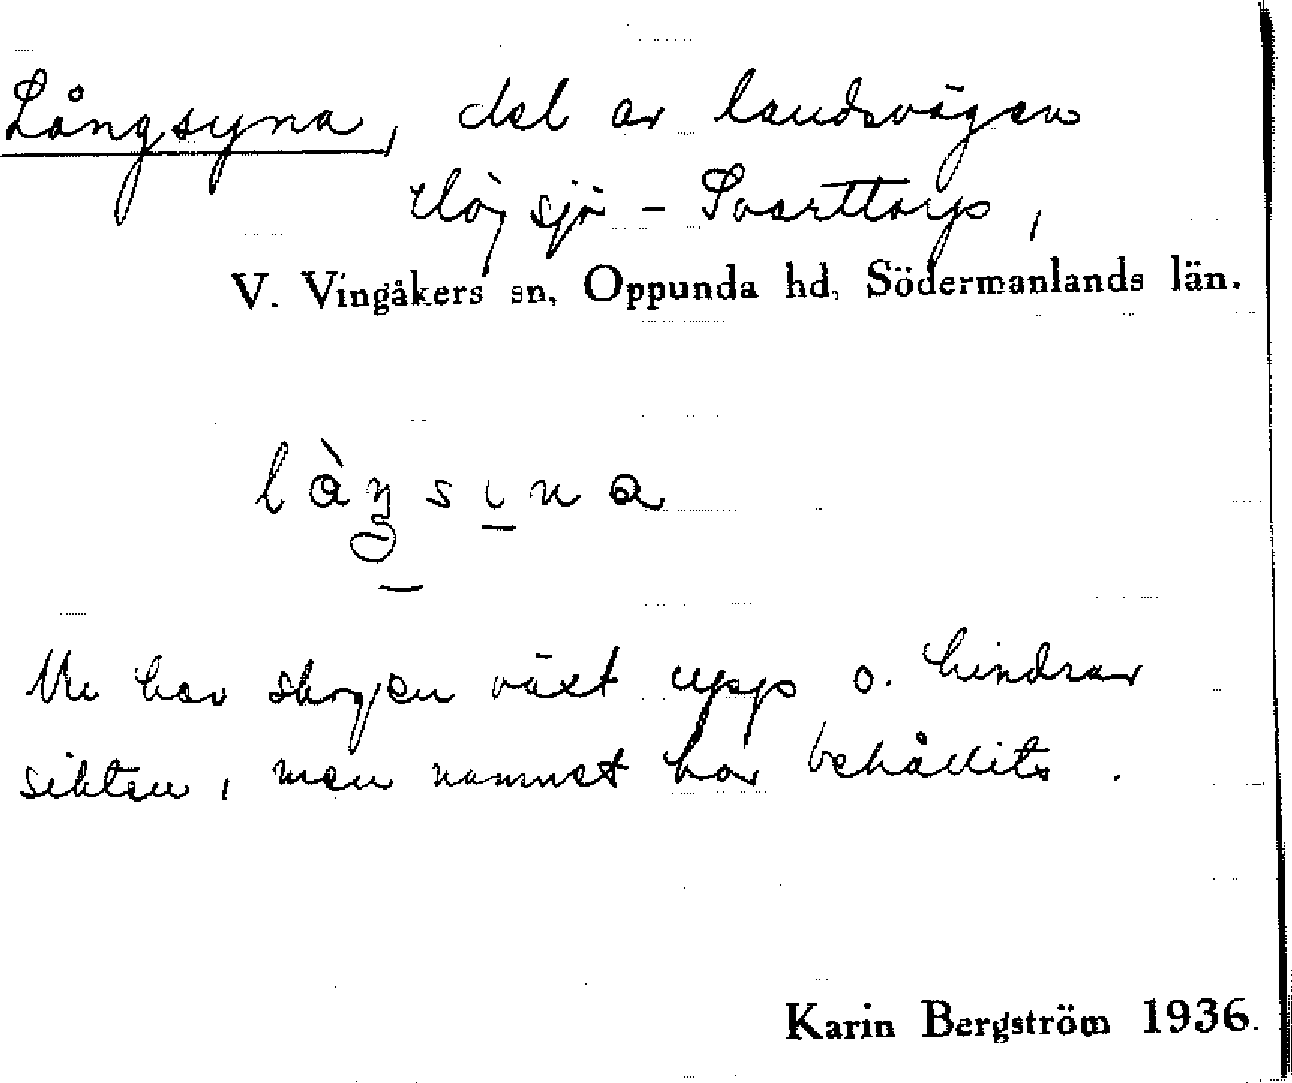 Långsyna, del av landsvägen
Högsjö - Svarttorp,
V. Vingåkers sn, Oppunda hd, Södermanlands län.
Nu har skogen växt upp o. hindrar
sikten, men namnet har behållits.
Karin Bergström 1936.